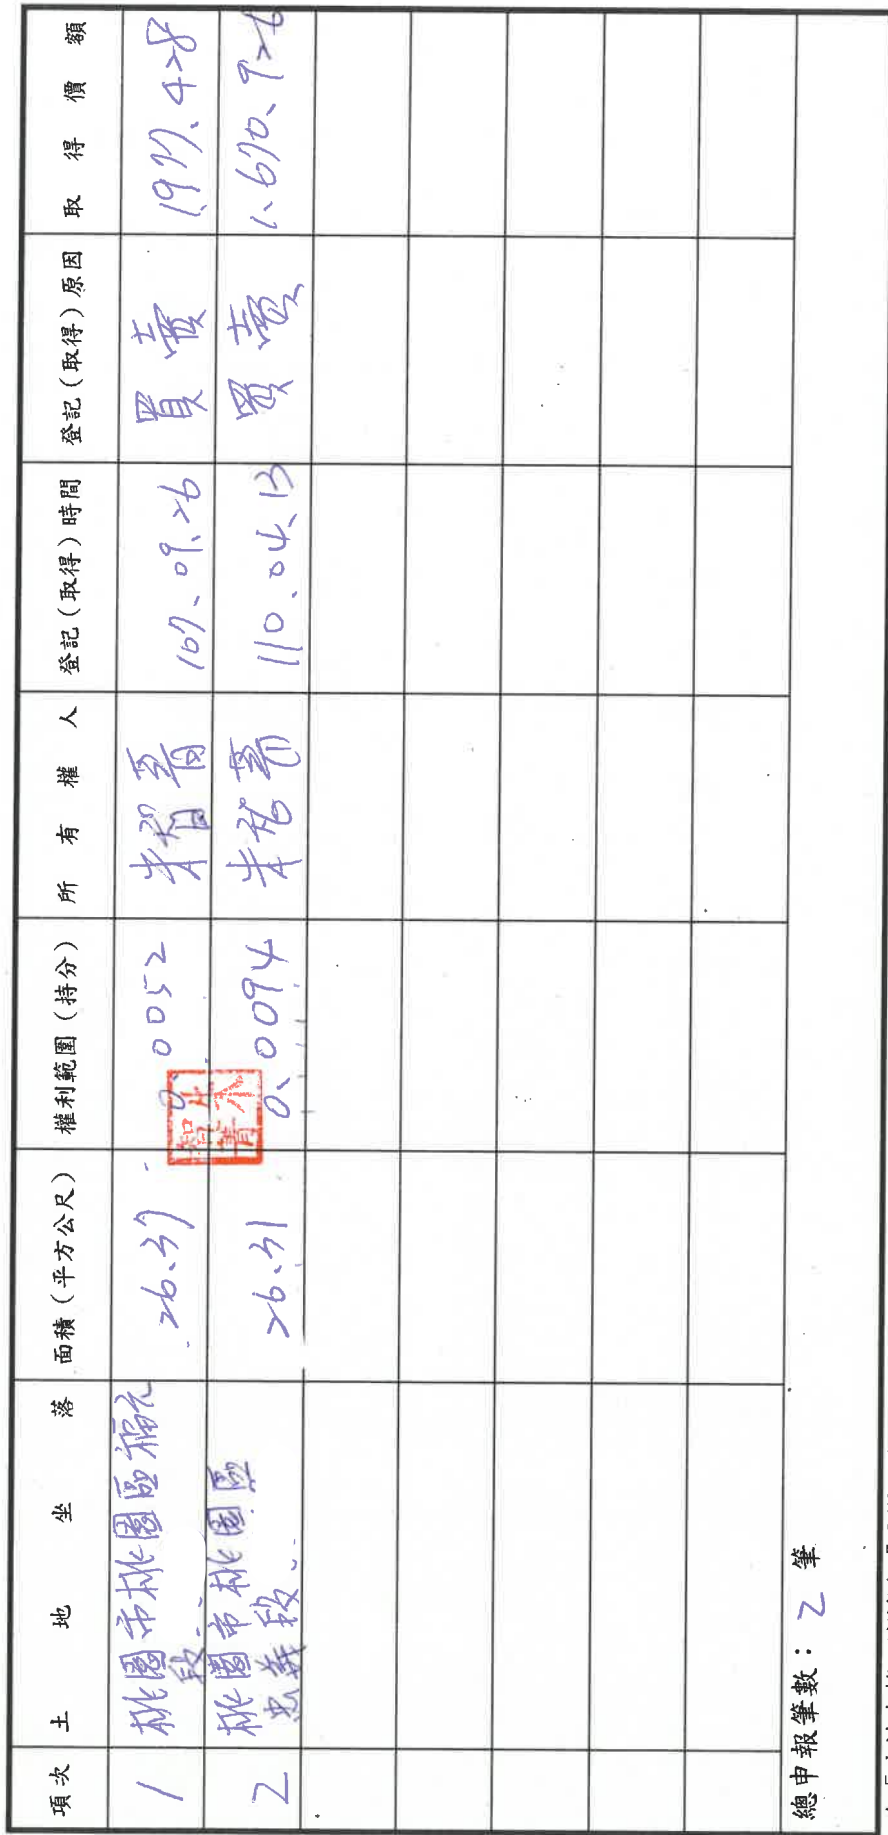 項次 土地坐落 面積(平方公尺) 權利範圍(持分) 所有權人 登記(取得)時間 登記(取得)原因 取得價額
1 桃園市桃園區福元段 26.37 0.0052 107.09.26 買賣
2 桃園市桃園區忠義段 26.31 0.0094 110.04.13 買賣 1、670、926
總申報筆數:2 筆